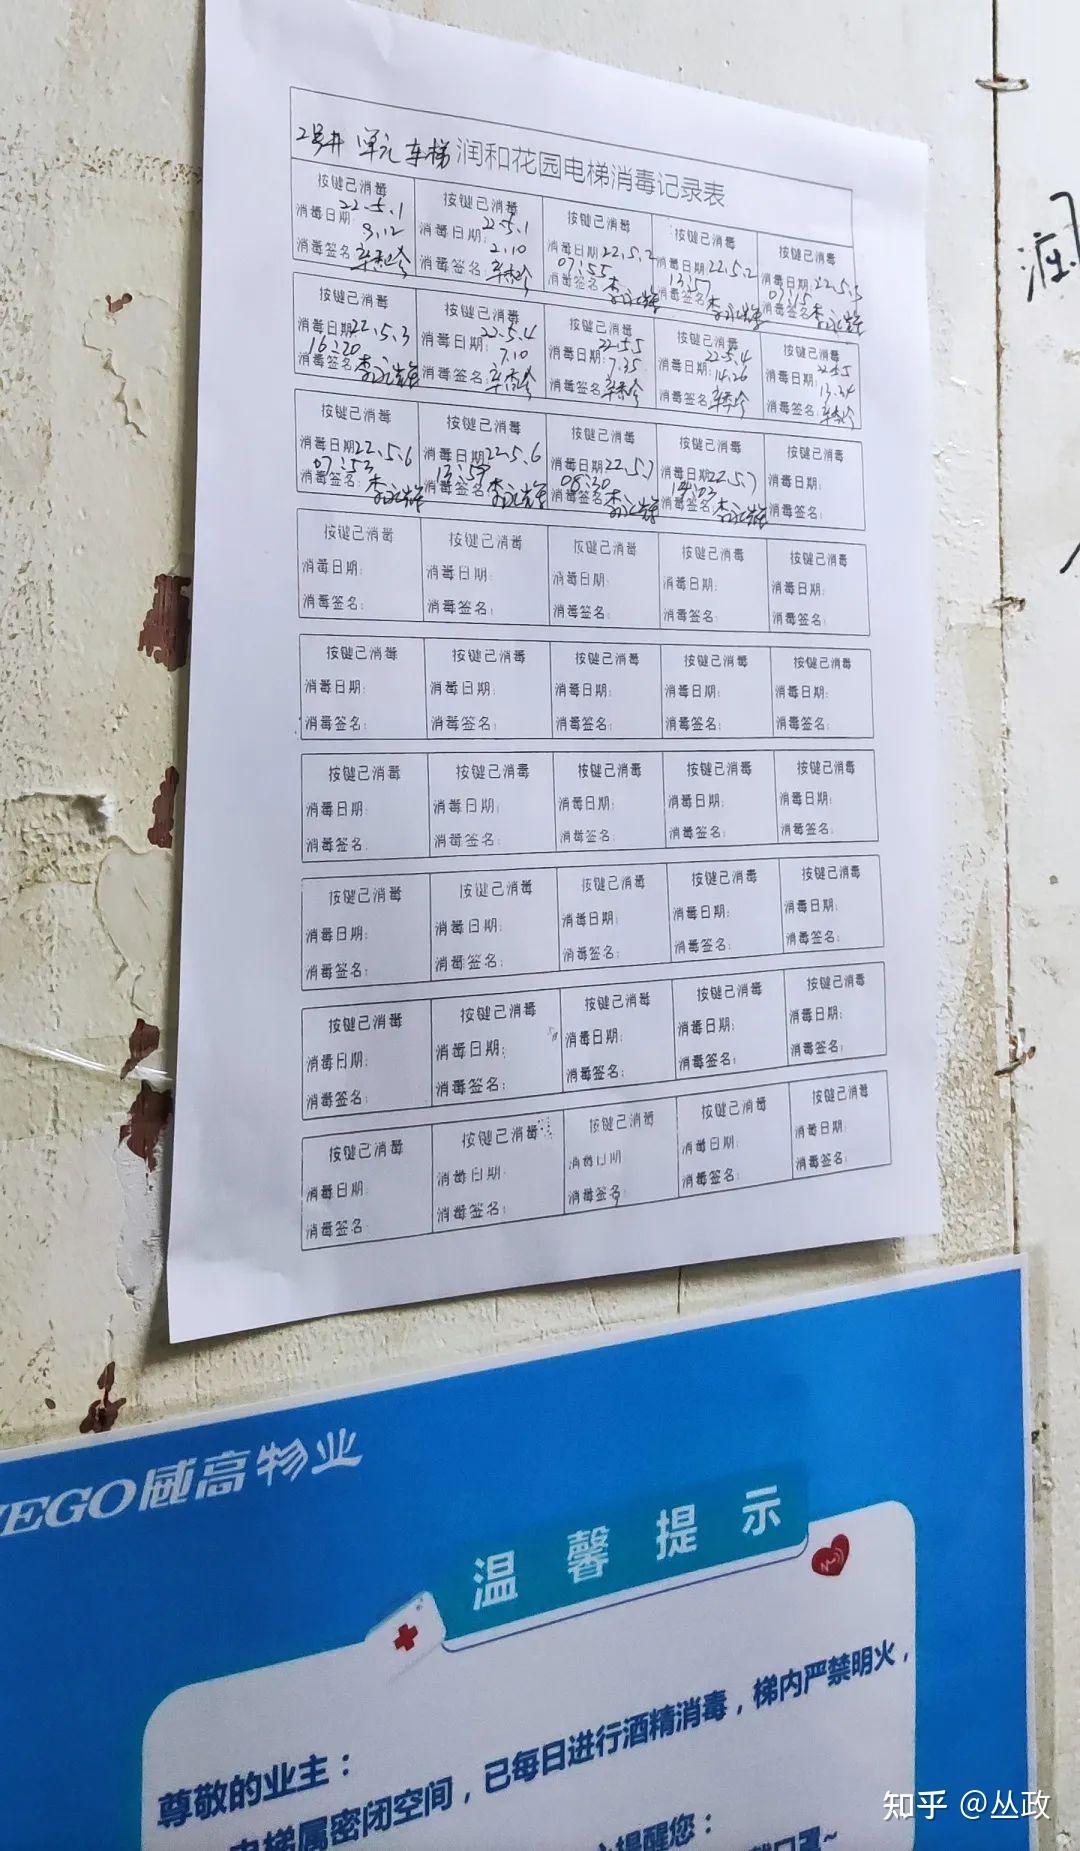 润和花园电梯消毒记录表
按键已消毒 按键已消毒 按键已消毒 按键已消毒 按键已消毒
消毒日期:22.5.1 消毒日期:22.5.1 消毒日期:22.5.2 消毒日期:22.5.2 消毒日期:22.5.3
9.12 2.10 07:55 13:57 07:15
消毒签名: 消毒签名: 消毒签名: 消毒签名: 消毒签名:
按键已消毒 按键已消毒 按键已消毒 按键已消毒 按键已消毒
消毒日期:22.5.3 消毒日期:22.5.4 消毒日期:22.5.5 消毒日期:22.5.4 消毒日期:22.5.5
16:20 7.10 7.35 14.26 13.24
消毒签名: 消毒签名: 消毒签名: 消毒签名: 消毒签名:
按键已消毒 按键已消毒 按键已消毒 按键已消毒 按键已消毒
消毒日期:22.5.6 消毒日期:22.5.6 消毒日期:22.5.7 消毒日期:22.5.7 消毒日期:
07:53 13:59 08:30 14:03
消毒签名: 消毒签名: 消毒签名: 消毒签名: 消毒签名:
按键已消毒 按键已消毒 按键已消毒 按键已消毒 按键已消毒
消毒日期: 消毒日期: 消毒日期: 消毒日期: 消毒日期:
消毒签名: 消毒签名: 消毒签名: 消毒签名: 消毒签名:
按键已消毒 按键已消毒 按键已消毒 按键已消毒 按键已消毒
消毒日期: 消毒日期: 消毒日期: 消毒日期: 消毒日期:
消毒签名: 消毒签名: 消毒签名: 消毒签名: 消毒签名:
按键已消毒 按键已消毒 按键已消毒 按键已消毒 按键已消毒
消毒日期: 消毒日期: 消毒日期: 消毒日期: 消毒日期:
消毒签名: 消毒签名: 消毒签名: 消毒签名: 消毒签名:
按键已消毒 按键已消毒 按键已消毒 按键已消毒 按键已消毒
消毒日期: 消毒日期: 消毒日期: 消毒日期: 消毒日期:
消毒签名: 消毒签名: 消毒签名: 消毒签名: 消毒签名:
按键已消毒 按键已消毒 按键已消毒 按键已消毒 按键已消毒
消毒日期: 消毒日期: 消毒日期: 消毒日期: 消毒日期:
消毒签名: 消毒签名: 消毒签名: 消毒签名: 消毒签名:
按键已消毒 按键已消毒 按键已消毒 按键已消毒 按键已消毒
消毒日期: 消毒日期: 消毒日期: 消毒日期: 消毒日期:
消毒签名: 消毒签名: 消毒签名: 消毒签名: 消毒签名:
EGO威高物业
温馨提示
尊敬的业主：
电梯属密闭空间，已每日进行酒精消毒，梯内严禁明火，
提醒您：
知乎 @丛政